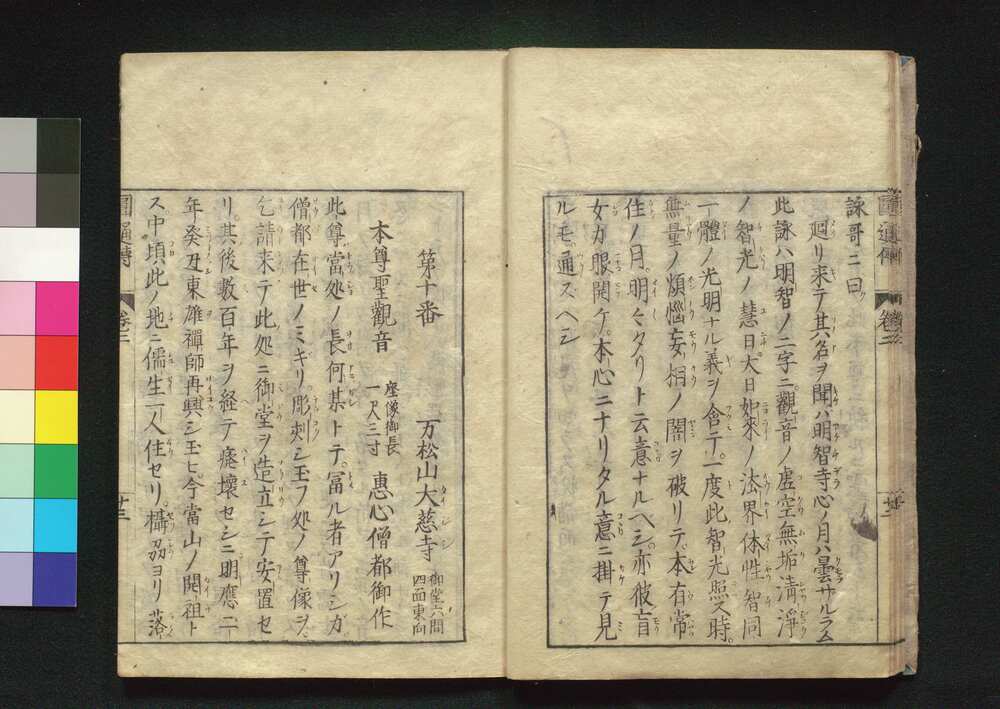 詠哥ニ曰
廻リ来テ其名ヲ聞ハ明智寺心ノ月ハ曇サルラム
此詠ハ明智ノ二字ニ觀音ノ虚空無垢清淨
ノ智光ノ慧日大日如來ノ法界体性智同
一體ノ光明ナル義ヲ含テ一度此智光照ス時
無量ノ煩惱妄想ノ闇ヲ破リテ本有常
住ノ月明々タリト云意ナルヘシ亦彼盲
女カ眼開ケ本心ニナリタル意ニ掛テ見
ルモ通スヘシ
第十番 万松山大慈寺 御堂六間四面東向
本尊聖觀音 座像御長一尺三寸 惠心僧都御作
此尊當処ノ長何某トテ冨ル者アリシカ
僧都在世ノミキリ彫刻シ玉フ処ノ尊像ヲ
乞請来テ此処ニ御堂ヲ造立シテ安置セ
リ其後數百年ヲ経テ癈壊セシニ明應二
年癸丑東雄禪師再興シ玉ヒ今當山ノ開祖ト
ス中頃此ノ地ニ儒生一人住セリ攝刕ヨリ落
圓通傳 卷三